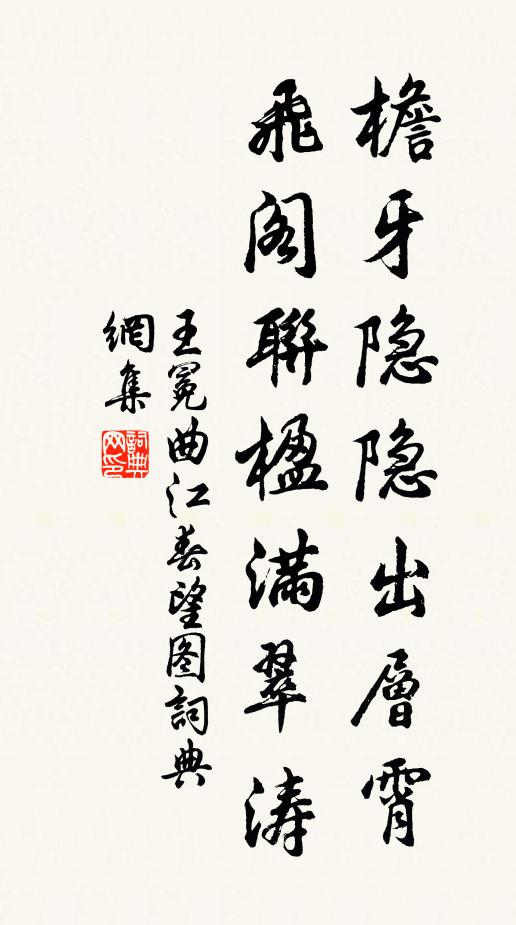 檐牙隐隐出層霄
飛阁聯楹滿翠涛
王冕曲江春望图詞典
網集
詞典
网印